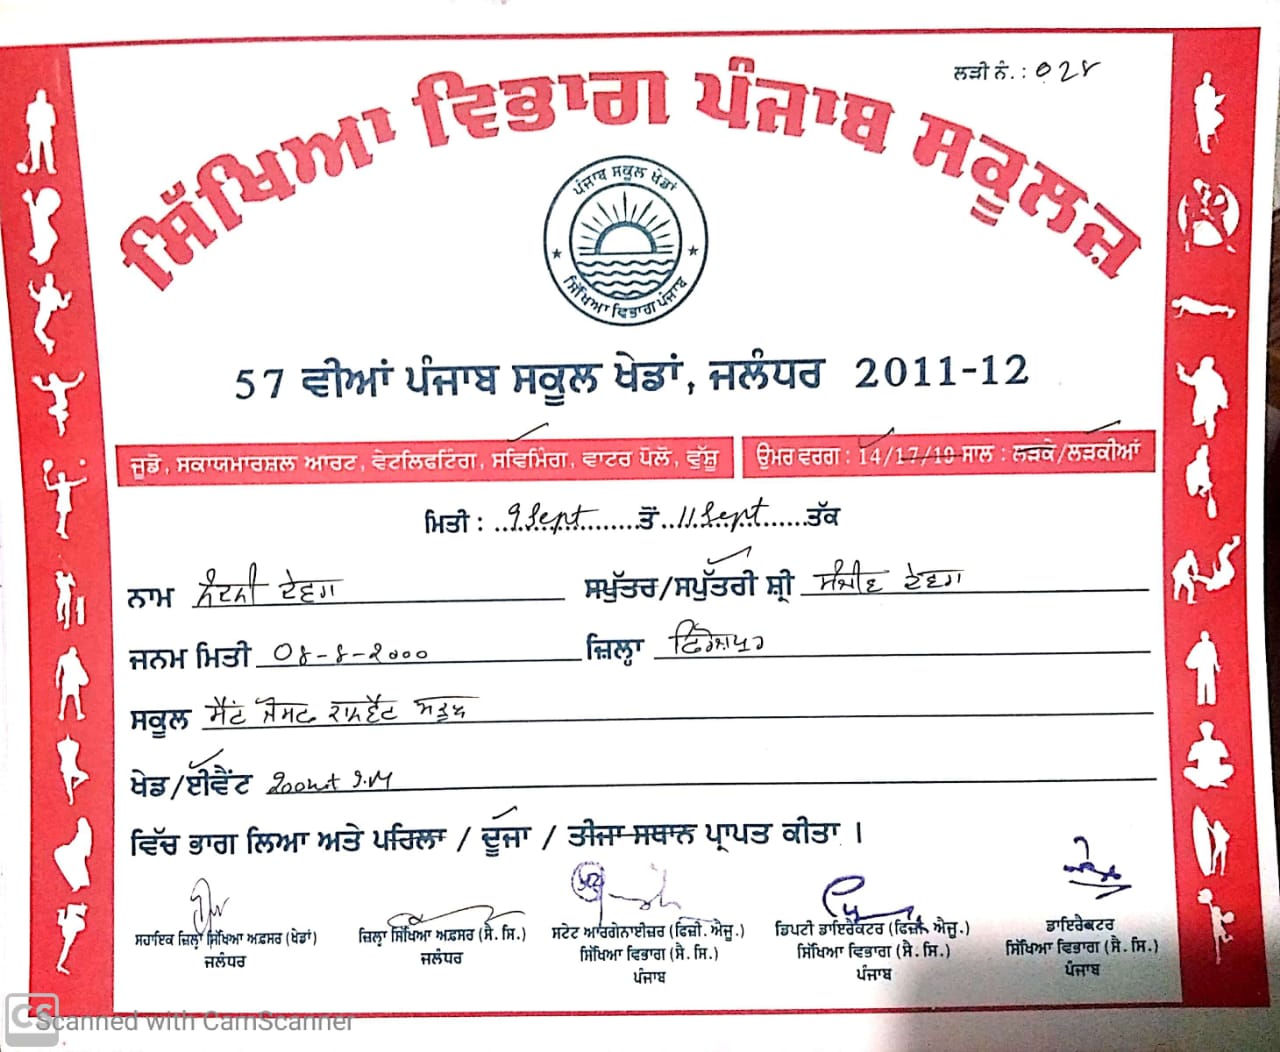 ਲੜੀ ਨੰ. : 028
ਸਿੱਖਿਆ ਵਿਭਾਗ ਪੰਜਾਬ ਸਕੂਲਜ਼
ਪੰਜਾਬ ਸਕੂਲ ਖੇਡਾਂ
ਸਿੱਖਿਆ ਵਿਭਾਗ ਪੰਜਾਬ
57 ਵੀਆਂ ਪੰਜਾਬ ਸਕੂਲ ਖੇਡਾਂ, ਜਲੰਧਰ 2011-12
ਜੂਡੋ, ਸਕਾਯਮਾਰਸ਼ਲ ਆਰਟ, ਵੇਟਲਿਫਟਿੰਗ, ਸਵਿਮਿੰਗ, ਵਾਟਰ ਪੋਲੋ, ਵੁੱਸ਼ੂ
ਉਮਰ ਵਰਗ : 14/17/19 ਸਾਲ : ਲੜਕੇ/ਲੜਕੀਆਂ
ਮਿਤੀ : 9 Sept ਤੋਂ 11 Sept ਤੱਕ
ਨਾਮ ਦੇਵਗਨ ਸਪੁੱਤਰ/ਸਪੁੱਤਰੀ ਸ਼੍ਰੀ ਸੰਜੀਵ ਦੇਵਗਨ
ਜਨਮ ਮਿਤੀ 04-4-2000 ਜ਼ਿਲ੍ਹਾ ਫਿਰੋਜ਼ਪੁਰ
ਸਕੂਲ ਸੈਂਟ ਜੋਸਫ ਕਾਨਵੈਂਟ
ਖੇਡ/ਈਵੈਂਟ 200mt I.M
ਵਿੱਚ ਭਾਗ ਲਿਆ ਅਤੇ ਪਹਿਲਾ / ਦੂਜਾ / ਤੀਜਾ ਸਥਾਨ ਪ੍ਰਾਪਤ ਕੀਤਾ ।
ਸਹਾਇਕ ਜ਼ਿਲ੍ਹਾ ਸਿੱਖਿਆ ਅਫ਼ਸਰ (ਖੇਡਾਂ)
ਜਲੰਧਰ
ਜ਼ਿਲ੍ਹਾ ਸਿੱਖਿਆ ਅਫ਼ਸਰ (ਸੈ. ਸਿ.)
ਜਲੰਧਰ
ਸਟੇਟ ਆਰਗੇਨਾਈਜ਼ਰ (ਫਿਜ਼ੀ. ਐਜੂ.)
ਸਿੱਖਿਆ ਵਿਭਾਗ (ਸੈ. ਸਿ.)
ਪੰਜਾਬ
ਡਿਪਟੀ ਡਾਇਰੈਕਟਰ (ਫਿਜ਼ੀ. ਐਜੂ.)
ਸਿੱਖਿਆ ਵਿਭਾਗ (ਸੈ. ਸਿ.)
ਪੰਜਾਬ
ਡਾਇਰੈਕਟਰ
ਸਿੱਖਿਆ ਵਿਭਾਗ (ਸੈ. ਸਿ.)
ਪੰਜਾਬ
CS Scanned with CamScanner